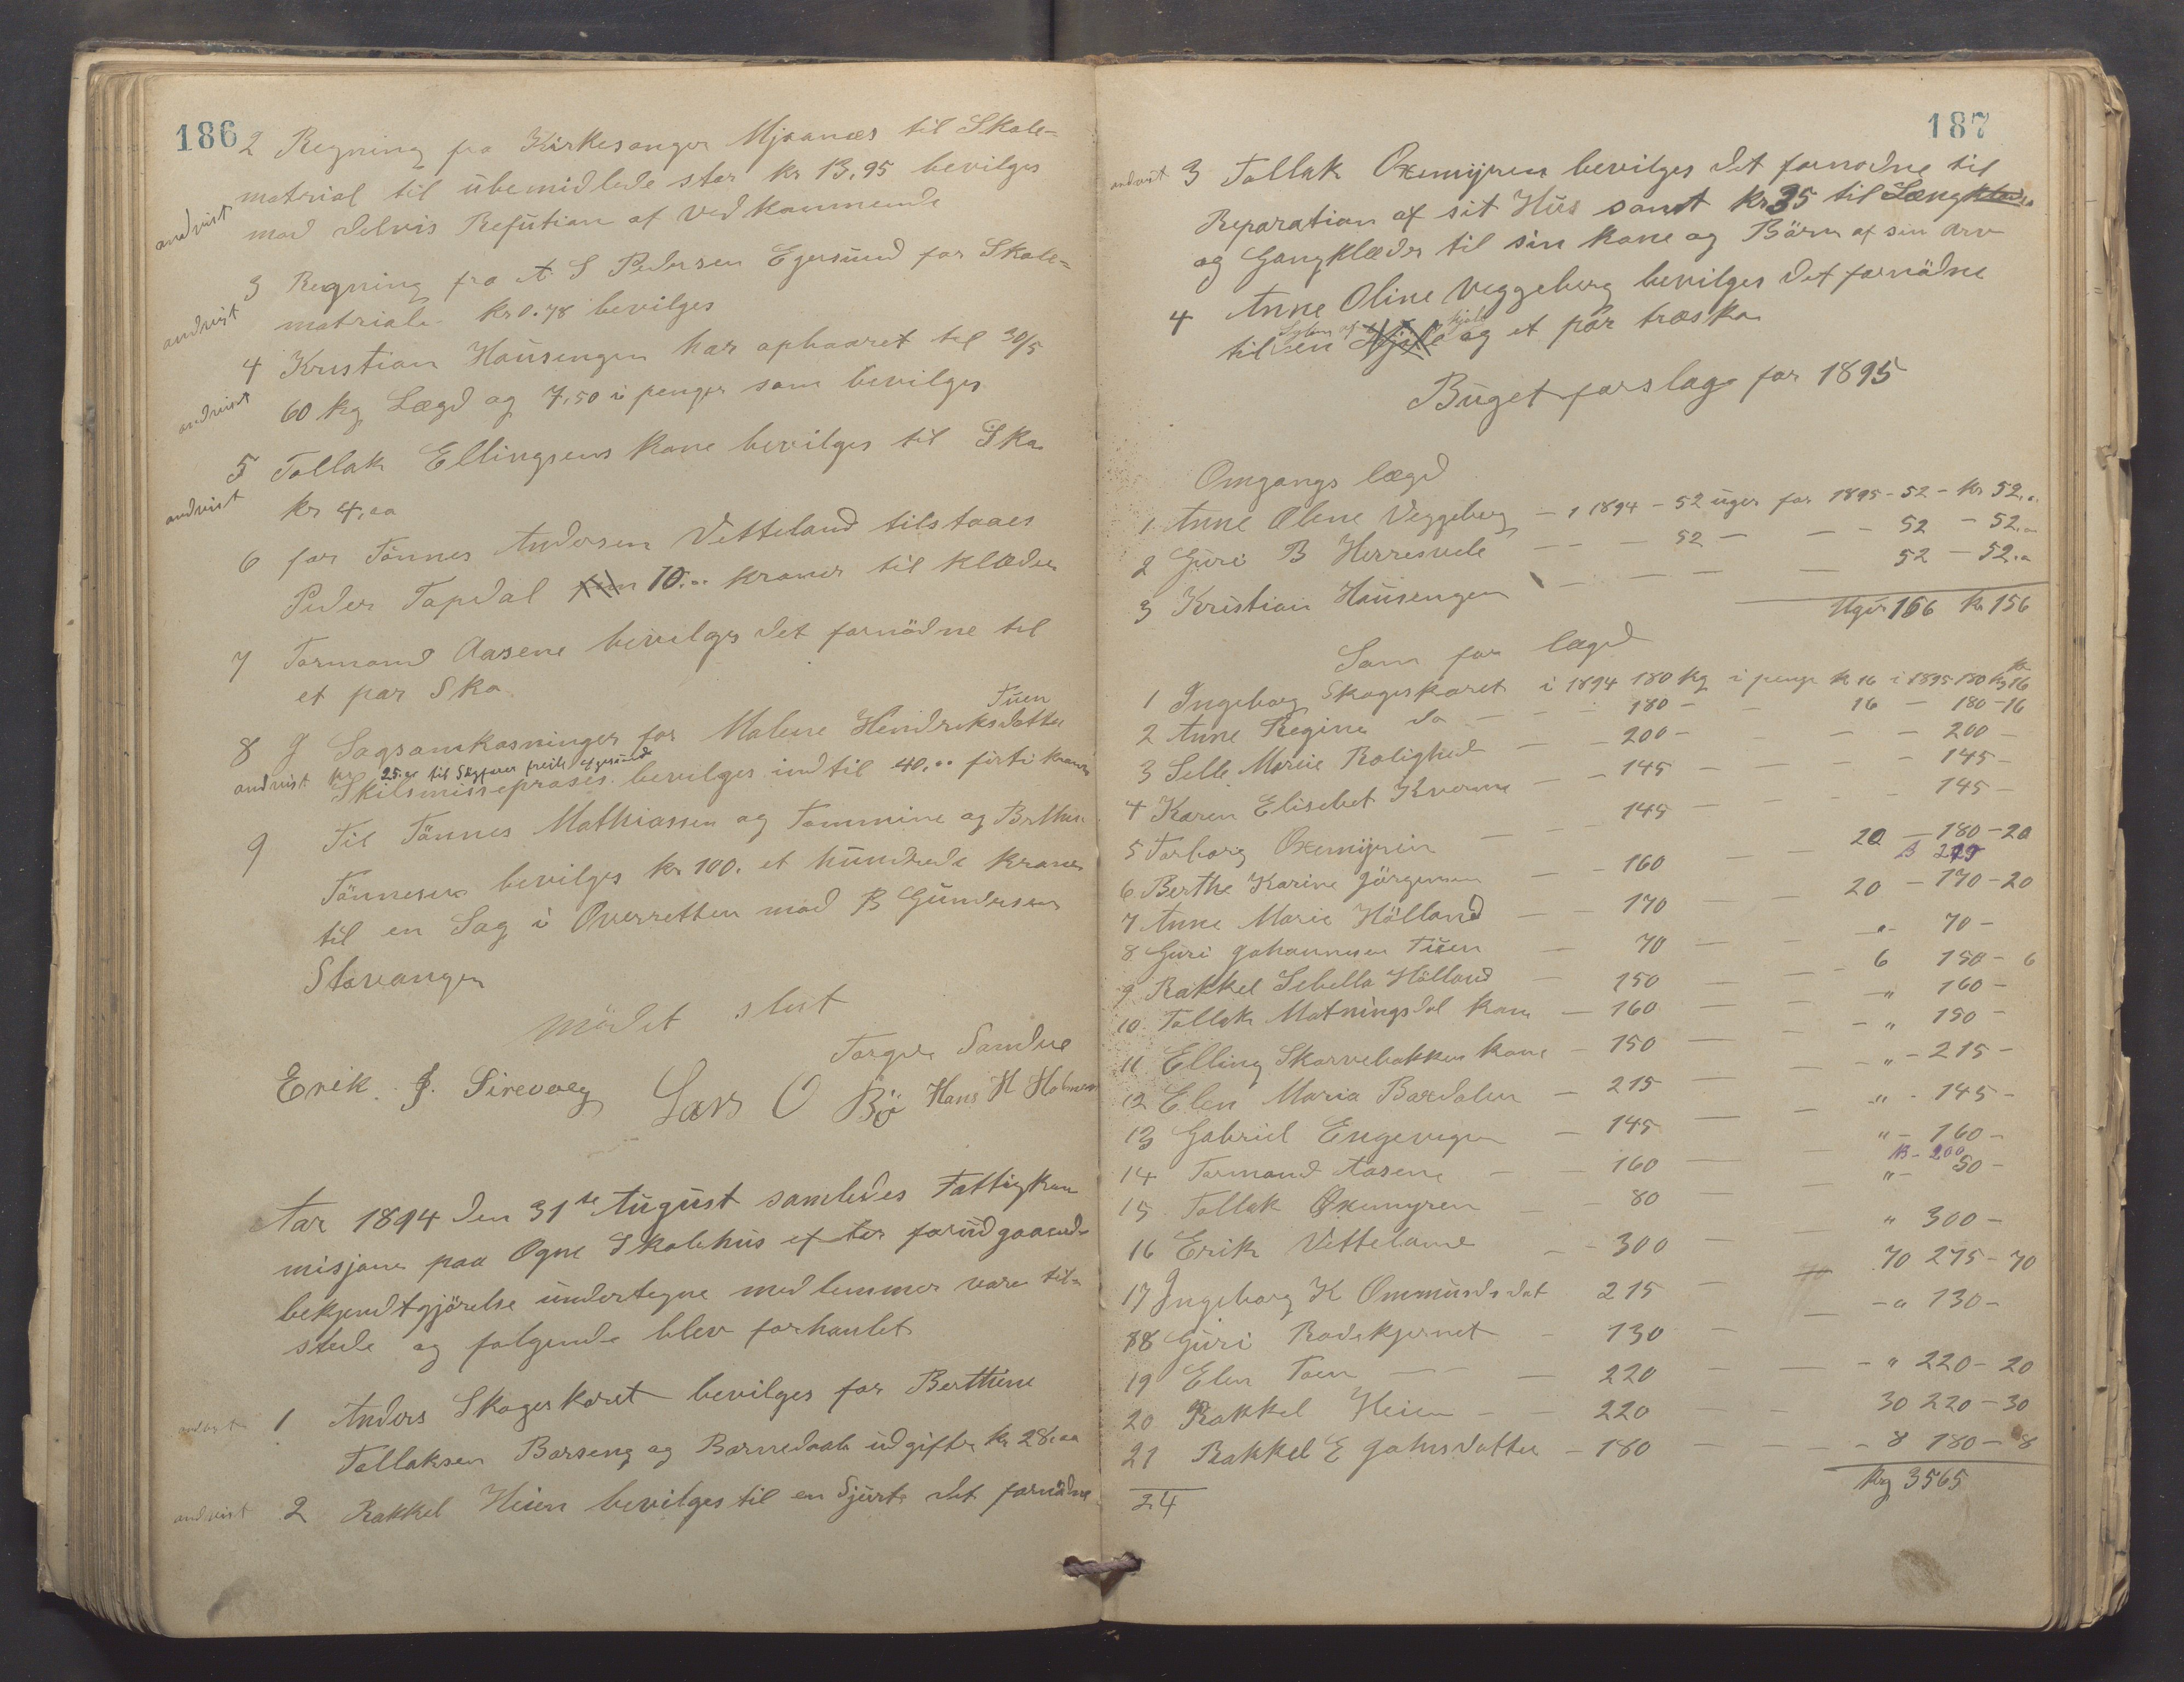 186
2 Regning fra Kirkesanger Mjaanæs til Skole-
matrial til ubemidlede stor kr 13,95 bevilges
andvist
mod delvis Refution af vedkommende
3 Regning fra A. S Pedersen Egersund for Skole-
andvist
matriale kr 0.78 bevilges
4 Kristian Hausengen har opbaaret til 30/5
andvist
60 kg Lægd og 7,50 i penger som bevilges
5 Tollak Ellingsens kone bevilges til Sko
andvist
kr 4,00
6 for Tönnes Andersen Vetteland tilstaaes
Peder Tapdal 10.00 kroner til klæder
7 Tormand Aasene bevilges det fornödne til
et par Sko
Tuen
8 I Sagsomkosninger for Malene Hendriksdatter
andvist kr 25.00 til Sagförer Egersund
Skilsmisseproses bevilges indtil 40.00 firti kroner
9 Til Tönnes Mathiassen og Tommine og Berthine
Tönnesen bevilges kr 100. et hundrede kroner
til en Sag i Overretten mod B Gundersen
Stavanger
mödet slut
Torger Sandve
Erik J. Sirevaag Lars O Bö Hans H Holmen
Aar 1894 den 31te August samledes Fattigkom
misjonen paa Ogne Skolehus efter forudgaaende
bekjendtgjörelse undertegne medlemmer vare til-
stede og folgende blev forhanlet
1 Anders Skogeskaret bevilges for Berthine
Tollaksen Barseng og Barnedaab udgifter kr 28.00
andvist 2 Rakkel Heien bevilges til en Sjurt det fornödne
187
andvist 3 Tollak Oxemyren bevilges det fornodne til
Reparation af sit Hus samt kr 35 til Sængklæder
og Gangklæder til sin kone og Börn af sin Arv
4 Anne Oline Veggeberg bevilges det fornödne
til en kjole og et par træsko
Buget forslag for 1895
Omgangs lægd
1 Anne Oline Veggeberg - i 1894 - 52 uger for 1895 - 52 - kr 52.00
2 Guri B Herresvele - - - 52 - - - 52 - 52.00
3 Kristian Hausengen - - - - 52 - 52.00
Uger 156 kr 156
Som for lægd
1 Ingeborg Skogeskaret i 1894 180 kg i penge kr 16 i 1895 180 kg kr 16
2 Anne Regina do - - 180 - - 16 - 180 - 16
3 Selle Marie Rolighed - - 200 - - - - 200 -
4 Karen Elisebet Kverme - - 145 - - - - 145 -
5 Torborg Oxemyren - - 145 - - - 145 -
6 Berthe Karine Jörgensen - - 160 - - 20 - 180 - 20
7 Anne Marie Hölland - - 170 - - 20 - 170 - 20
8 Guri Johannesen Tuen - 70 - - " 70 -
9 Rakkel Sebella Hölland - 150 - - 6 150 - 6
10 Tollak Matningsdal kone - 160 - - " 160 -
11 Elling Skarvebakken kone - 150 - - " 150 -
12 Elen Maria Bardalen - 215 - - " - 215 -
13 Gabriel Engevigen - 145 - - " - 145 -
14 Tormand Aasene - - 160 - - " - 160 -
B - 200
15 Tollak Oxemyren - - 80 - - " - 50 -
16 Erik Vetteland - - 300 - - " 300 -
17 Ingeborg K Ommundsdat 215 - 70 275 - 70
18 Guri Rodekjernet - 130 - - " 130 -
19 Elen Toen - - - 220 - - " 220 - 20
20 Rakkel Heien - - 220 - - 30 220 - 30
21 Rakkel E Johnsdatter - 180 - - - 8 180 - 8
24
kg 3565